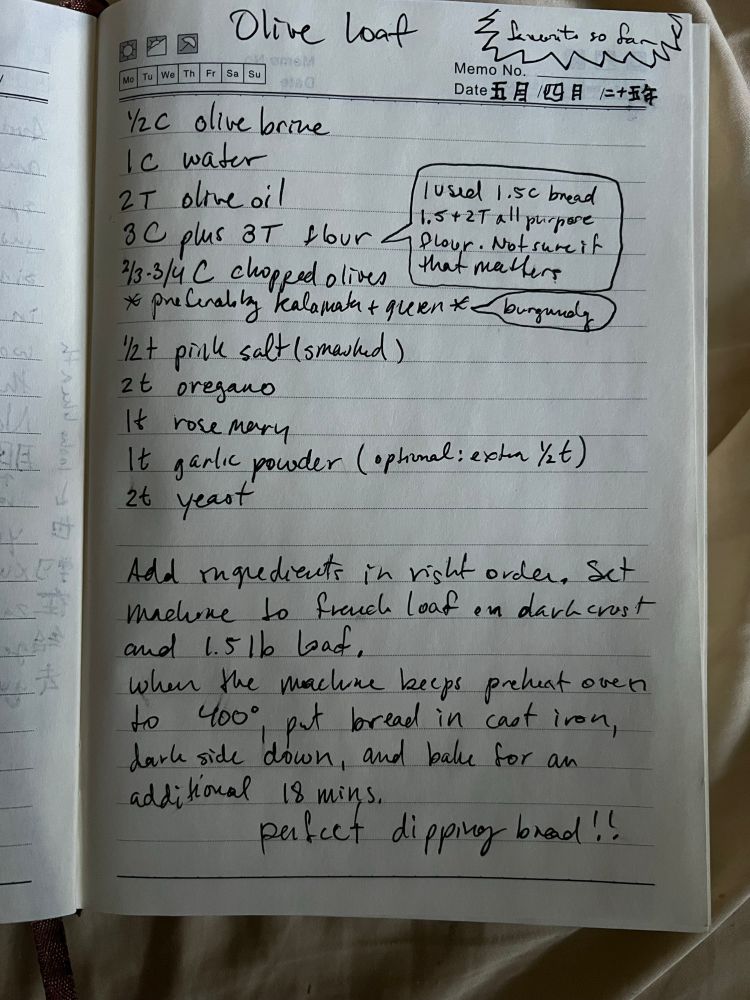 Olive loaf
favorite so far
Mo Tu We Th Fr Sa Su
Memo No.
Date 五月/四日/二十五年
1/2 C olive brine
1 C water
2T olive oil
3 C plus 3T flour
I used 1.5C bread
1.5 + 2T all purpose
flour. Not sure if
that matters
2/3-3/4 C chopped olives
* preferably kalamata + green *
burgundy
1/2t pink salt (smashed)
2t oregano
1t rosemary
1t garlic powder (optional: extra 1/2t)
2t yeast
Add ingredients in right order. Set
machine to french loaf on dark crust
and 1.5 lb loaf.
When the machine beeps preheat oven
to 400°, put bread in cast iron,
dark side down, and bake for an
additional 18 mins.
perfect dipping bread!!